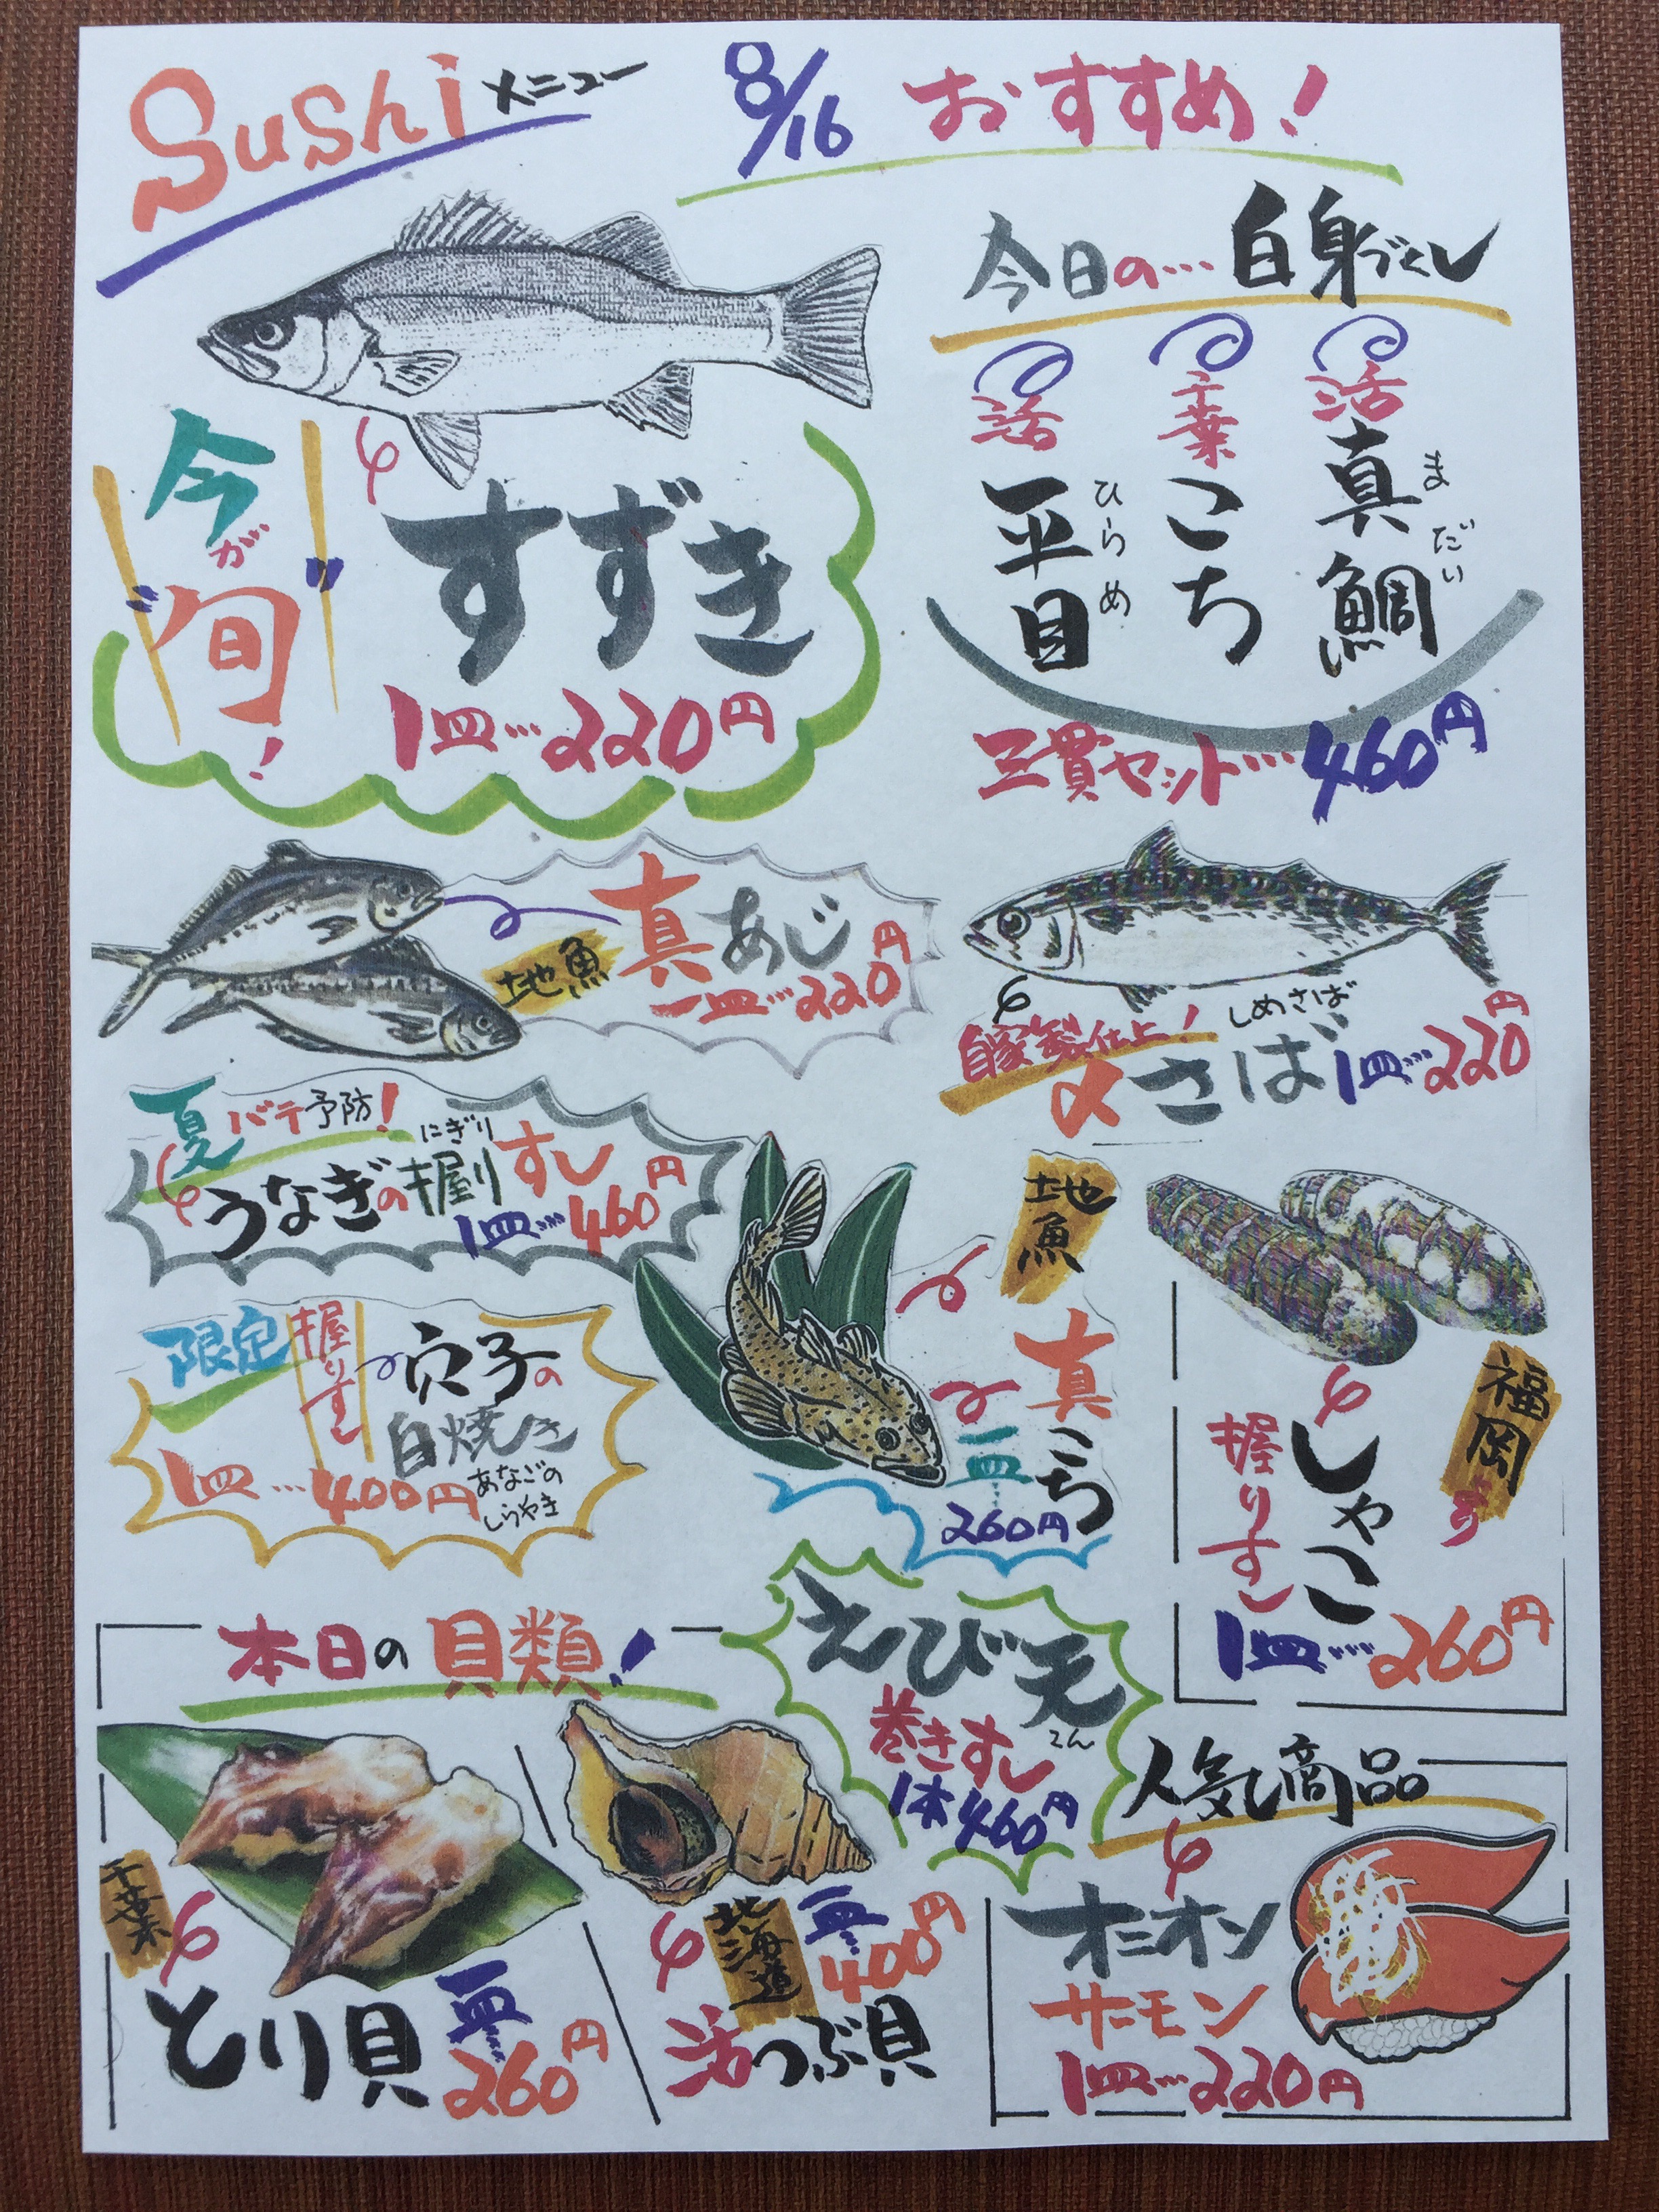 Sushi メニュー
8/16 おすすめ!
今が旬!
すずき
1皿…220円
今日の…白身づくし
活 真鯛 まだい
千葉 こち
活 平目 ひらめ
三貫セット…460円
地魚 真あじ
一皿…220円
自家製仕上!
しめさば
〆さば 1皿…220円
夏バテ予防!
うなぎの握りすし
にぎり
1皿…460円
限定 握りすし
穴子の
白焼き
あなごの
しらやき
1皿…400円
地魚
真こち
一皿…
260円
福岡より
しゃこ
握りすし
1皿…260円
本日の貝類!
千葉
とり貝
一皿…
260円
北海道
活つぶ貝
一皿…
400円
えび天
てん
巻きすし
1本460円
人気商品
オニオン
サーモン
1皿…220円